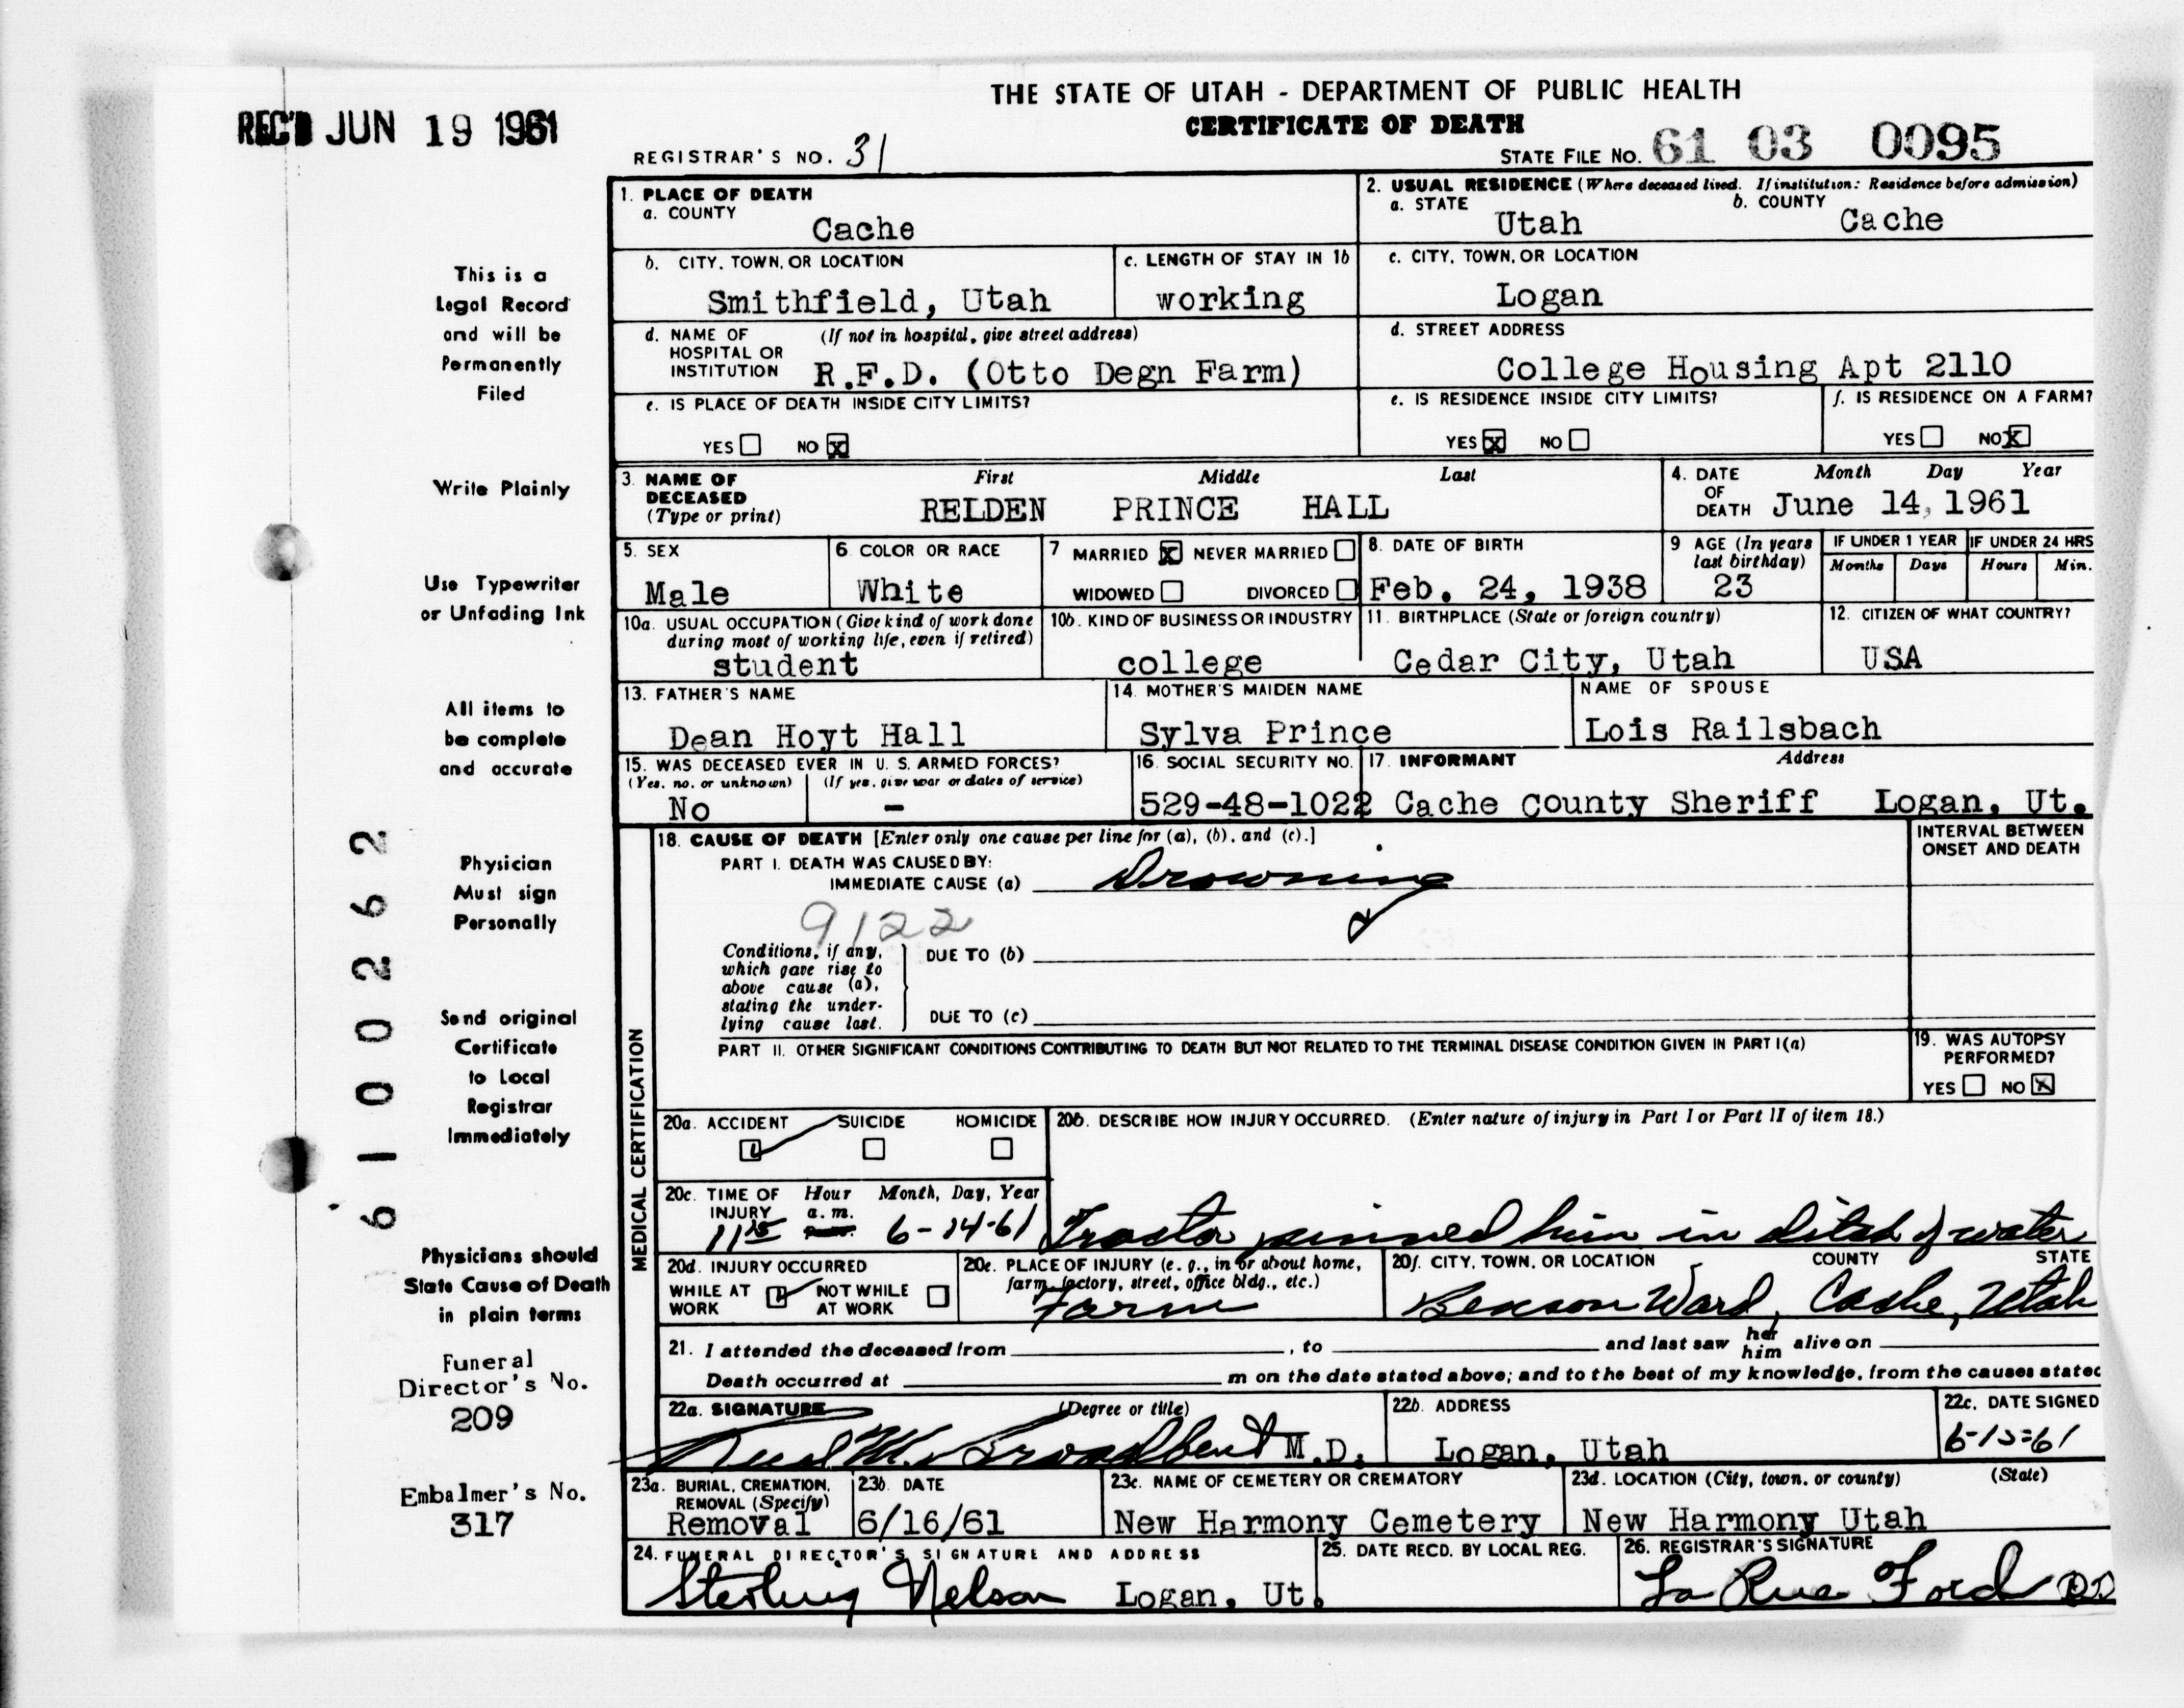 THE STATE OF UTAH - DEPARTMENT OF PUBLIC HEALTH
CERTIFICATE OF DEATH
REC'D JUN 19 1961
REGISTRAR'S NO. 31
STATE FILE NO. 61 03 0095
1. PLACE OF DEATH
a. COUNTY
Cache
2. USUAL RESIDENCE (Where deceased lived. If institution: Residence before admission)
a. STATE
Utah
b. COUNTY
Cache
b. CITY, TOWN, OR LOCATION
Smithfield, Utah
c. LENGTH OF STAY IN 1b
working
c. CITY, TOWN, OR LOCATION
Logan
d. NAME OF HOSPITAL OR INSTITUTION
(If not in hospital, give street address)
R.F.D. (Otto Degn Farm)
d. STREET ADDRESS
College Housing Apt 2110
e. IS PLACE OF DEATH INSIDE CITY LIMITS?
YES NO X
e. IS RESIDENCE INSIDE CITY LIMITS?
YES X NO
f. IS RESIDENCE ON A FARM?
YES NO X
3. NAME OF DECEASED (Type or print)
First Middle Last
RELDEN PRINCE HALL
4. DATE OF DEATH
Month Day Year
June 14, 1961
5. SEX
Male
6. COLOR OR RACE
White
7 MARRIED X NEVER MARRIED
WIDOWED DIVORCED
8. DATE OF BIRTH
Feb. 24, 1938
9 AGE (In years last birthday)
23
IF UNDER 1 YEAR
Months Days
IF UNDER 24 HRS
Hours Min.
10a. USUAL OCCUPATION (Give kind of work done during most of working life, even if retired)
student
10b. KIND OF BUSINESS OR INDUSTRY
college
11. BIRTHPLACE (State or foreign country)
Cedar City, Utah
12. CITIZEN OF WHAT COUNTRY?
USA
13. FATHER'S NAME
Dean Hoyt Hall
14. MOTHER'S MAIDEN NAME
Sylva Prince
NAME OF SPOUSE
Lois Railsbach
15. WAS DECEASED EVER IN U. S. ARMED FORCES?
(Yes, no, or unknown) (If yes, give war or dates of service)
No -
16. SOCIAL SECURITY NO.
529-48-1022
17. INFORMANT Address
Cache county Sheriff Logan, Ut.
18. CAUSE OF DEATH [Enter only one cause per line for (a), (b), and (c).]
PART I. DEATH WAS CAUSED BY:
IMMEDIATE CAUSE (a) Drowning
9122
Conditions, if any, which gave rise to above cause (a), stating the underlying cause last.
DUE TO (b)
DUE TO (c)
INTERVAL BETWEEN ONSET AND DEATH
PART II. OTHER SIGNIFICANT CONDITIONS CONTRIBUTING TO DEATH BUT NOT RELATED TO THE TERMINAL DISEASE CONDITION GIVEN IN PART I(a)
19. WAS AUTOPSY PERFORMED?
YES NO X
MEDICAL CERTIFICATION
20a. ACCIDENT SUICIDE HOMICIDE
20b. DESCRIBE HOW INJURY OCCURRED. (Enter nature of injury in Part I or Part II of item 18.)
Tractor pinned him in ditch of water
20c. TIME OF INJURY
Hour Month, Day, Year
a. m.
11 15 6-14-61
20d. INJURY OCCURRED
WHILE AT WORK NOT WHILE AT WORK
20e. PLACE OF INJURY (e. g., in or about home, farm, factory, street, office bldg., etc.)
Farm
20f. CITY, TOWN, OR LOCATION COUNTY STATE
Benson Ward, Cache, Utah
21. I attended the deceased from , to and last saw her him alive on
Death occurred at m on the date stated above; and to the best of my knowledge, from the causes stated
22a. SIGNATURE (Degree or title)
Broadbent M.D.
22b. ADDRESS
Logan, Utah
22c. DATE SIGNED
6-15-61
23a. BURIAL, CREMATION, REMOVAL (Specify)
Removal
23b. DATE
6/16/61
23c. NAME OF CEMETERY OR CREMATORY
New Harmony Cemetery
23d. LOCATION (City, town, or county) (State)
New Harmony Utah
24. FUNERAL DIRECTOR'S SIGNATURE AND ADDRESS
Sterling Nelson Logan, Ut.
25. DATE RECD. BY LOCAL REG.
26. REGISTRAR'S SIGNATURE
La Rue Ford
This is a
Legal Record
and will be
Permanently
Filed
Write Plainly
Use Typewriter
or Unfading Ink
All items to
be complete
and accurate
Physician
Must sign
Personally
Send original
Certificate
to Local
Registrar
Immediately
Physicians should
State Cause of Death
in plain terms
Funeral
Director's No.
209
Embalmer's No.
317
6100262